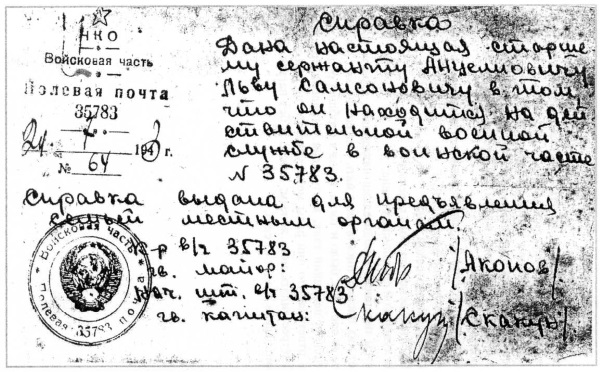 НКО
Войсковая часть
Полевая почта
35783
194 г.
№ 64
Справка
Дана настоящая старше-
му сержанту Анцелиовичу
Льву Самсоновичу в том,
что он находится на дей
ствительной военной
службе в воинской части
N 35783.
Справка выдана для предъявления
семьей местным органам.
К-р в/ч 35783
гв. майор:
/Яконов/
Нач. шт. в/ч 35783
гв. капитан:
Войсковая часть
Полевая почта
35783